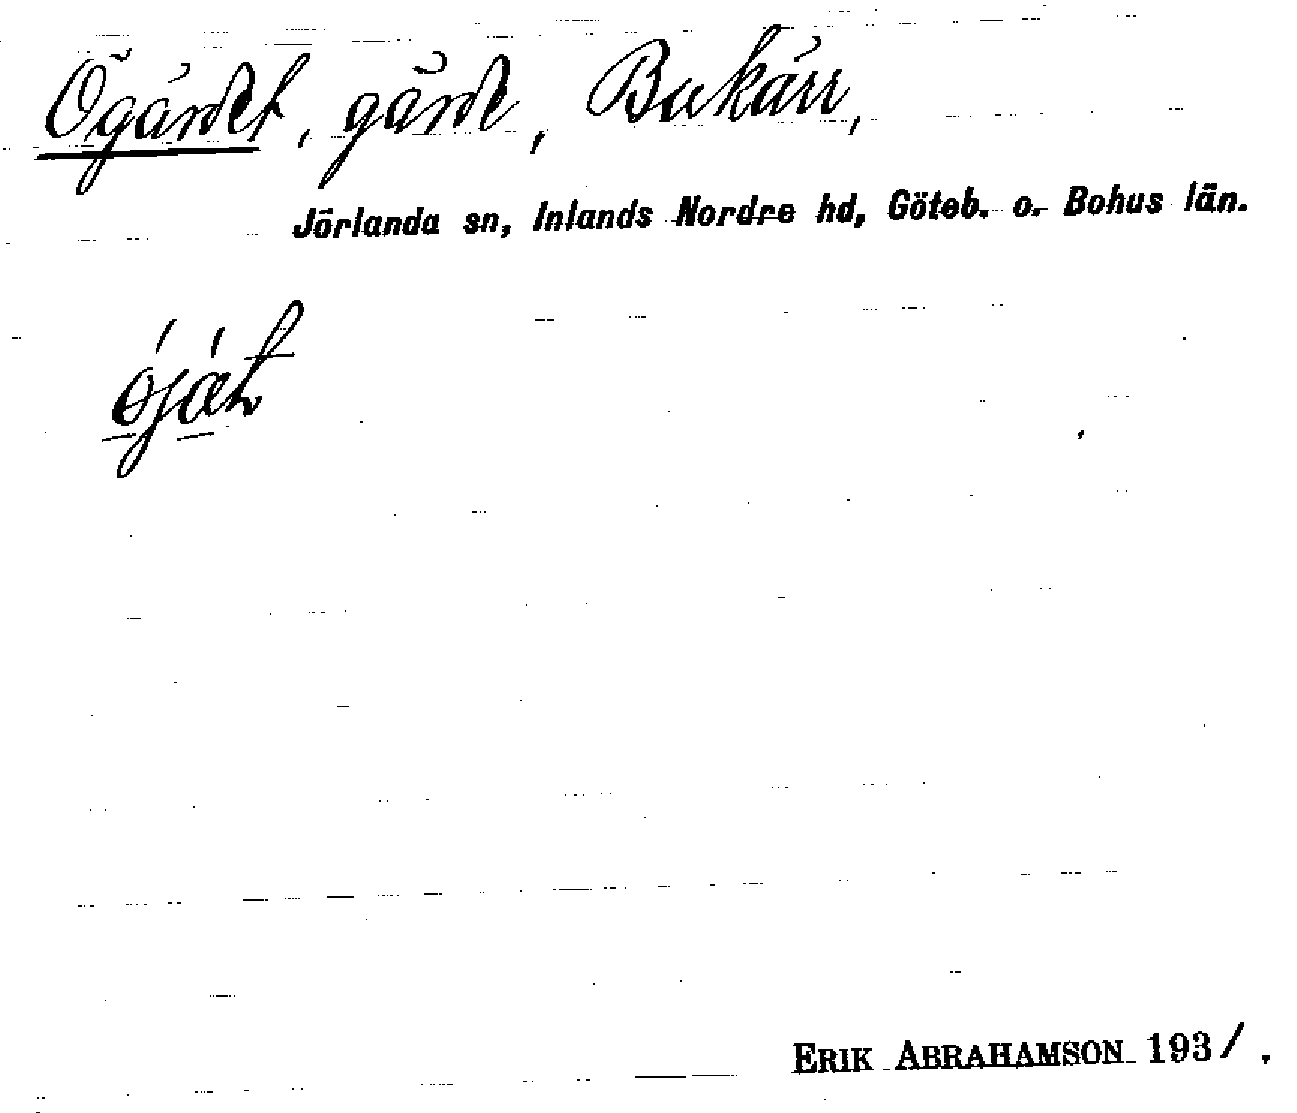 Ögärdet, gärde, Bukärr,
Jörlanda sn, Inlands Nordre hd, Göteb. o. Bohus län.
ERIK ABRAHAMSON 1931.